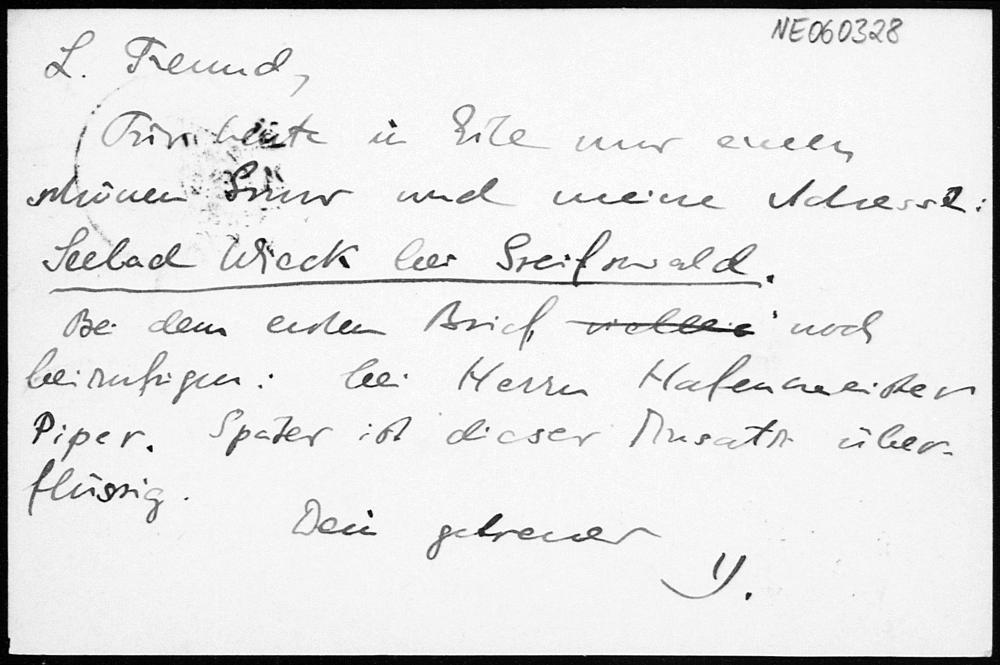 NE060328
L. Freund,
Für heute in Eile nur einen
schönen Gruss und meine Adresse:
Seebad Wieck bei Greifswald.
Bei dem ersten Brief noch
beizufügen: bei Herrn Hafenmeister
Piper. Später ist dieser Zusatz über-
flüssig.
Dein getreuer